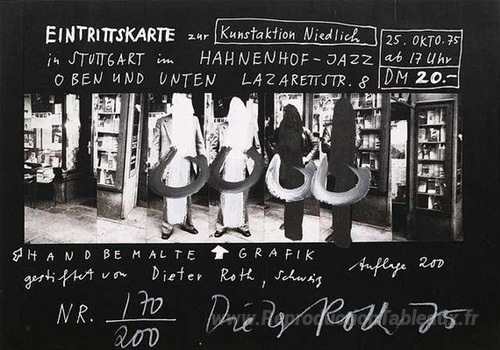 EINTRITTSKARTE zur Kunstaktion Niedlich
in STUTTGART im HAHNENHOF-JAZZ
OBEN UND UNTEN LAZARETTSTR. 8
25. OKTO. 75
ab 17 Uhr
DM 20.-
HANDBEMALTE GRAFIK
gestiftet von Dieter Roth, Schweiz
Auflage 200
NR. 170/200
Dieter Roth 75
www.ReproductionTableaux.fr